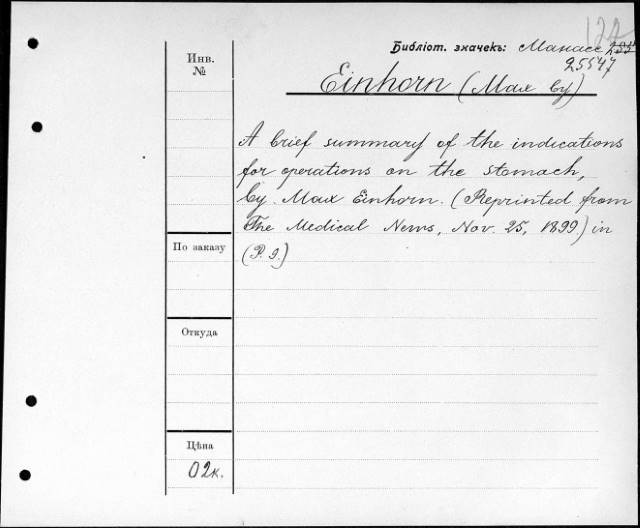 122
Библіот. значекъ: Манасе
25547
Инв.
№
Einhorn (Max by)
A brief summary of the indications
for operations on the stomach,
by Max Einhorn. (Reprinted from
The Medical News, Nov. 25, 1899.) in
(P. 9.)
По заказу
Откуда
Цѣна
02к.